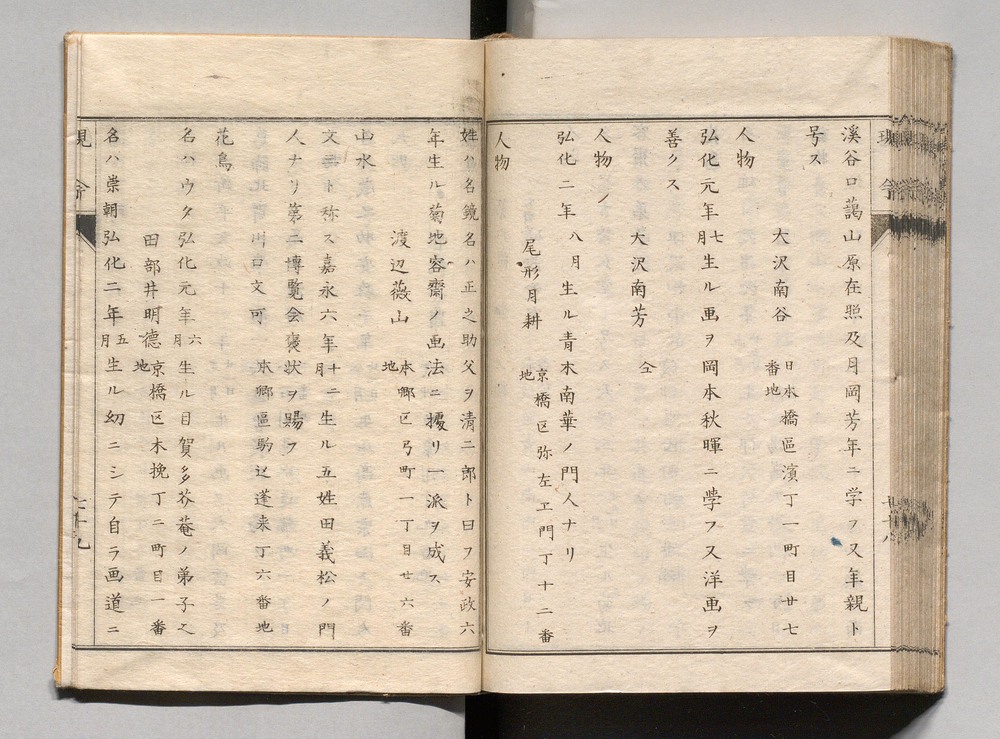 溪谷口藹山原在照及月岡芳年ニ学フ又年親ト
号ス
大沢南谷 日本橋區濱丁一町目廿七番地
人物
弘化元年七月生ル画ヲ岡本秋暉ニ学フ又洋画ヲ
善クス
大沢南芳 仝
人物
弘化二年八月生ル青木南華ノ門人ナリ
尾形月耕 京橋区弥左エ門丁十二番地
人物
姓ハ名鏡名ハ正之助父ヲ清二郎ト曰フ安政六
年生ル菊地容齋ノ画法ニ擾リ一派ヲ成ス
渡辺薇山 本郷区弓町一丁目廿六番地
山水
文海ト称ス嘉永六年十二月生ル五姓田義松ノ門
人ナリ第二博覧会褒状ヲ賜フ
川口文可 本郷區駒込蓬来丁六番地
花鳥
名ハウタ弘化元年六月生ル目賀多芥菴ノ弟子之
田部井明德 京橋区木挽丁二町目一番地
名ハ崇朝弘化二年五月生ル幼ニシテ自ラ画道ニ